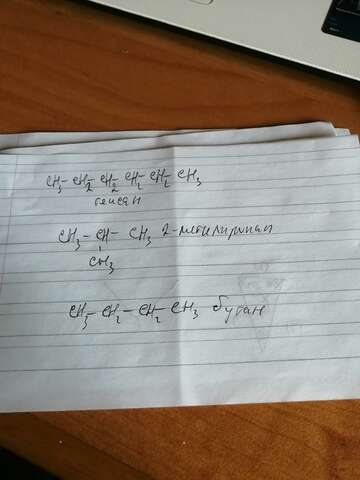 CH3-CH2-CH2-CH2-CH2-CH3
гексан
CH3-CH-CH3 2-метилпропан
CH3
CH3-CH2-CH2-CH3 бутан